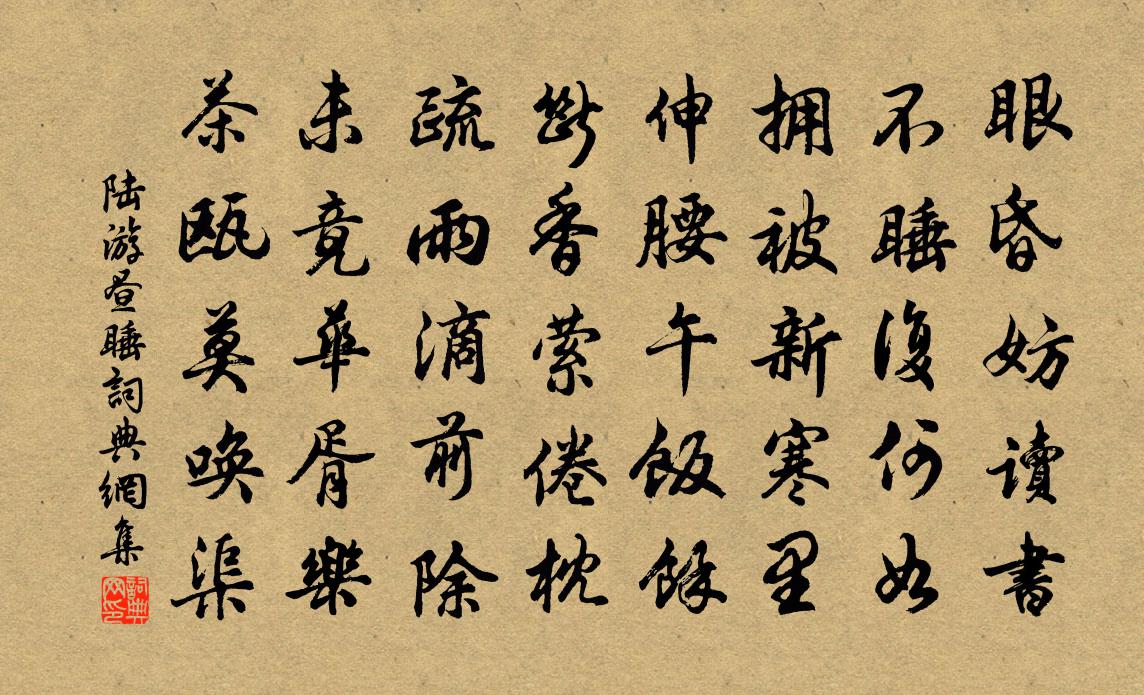 眼昏妨讀書
不睡復何如
拥被新寒里
伸腰午飯餘
斷香萦倦枕
疏雨滴前除
未竟華胥樂
茶甌莫唤渠
陆游昼睡詞典網集
詞典网印